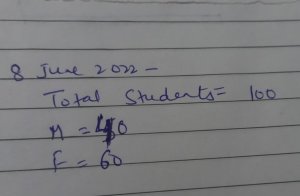 8 June 2022 -
Total Students = 100
M = 40
F = 60